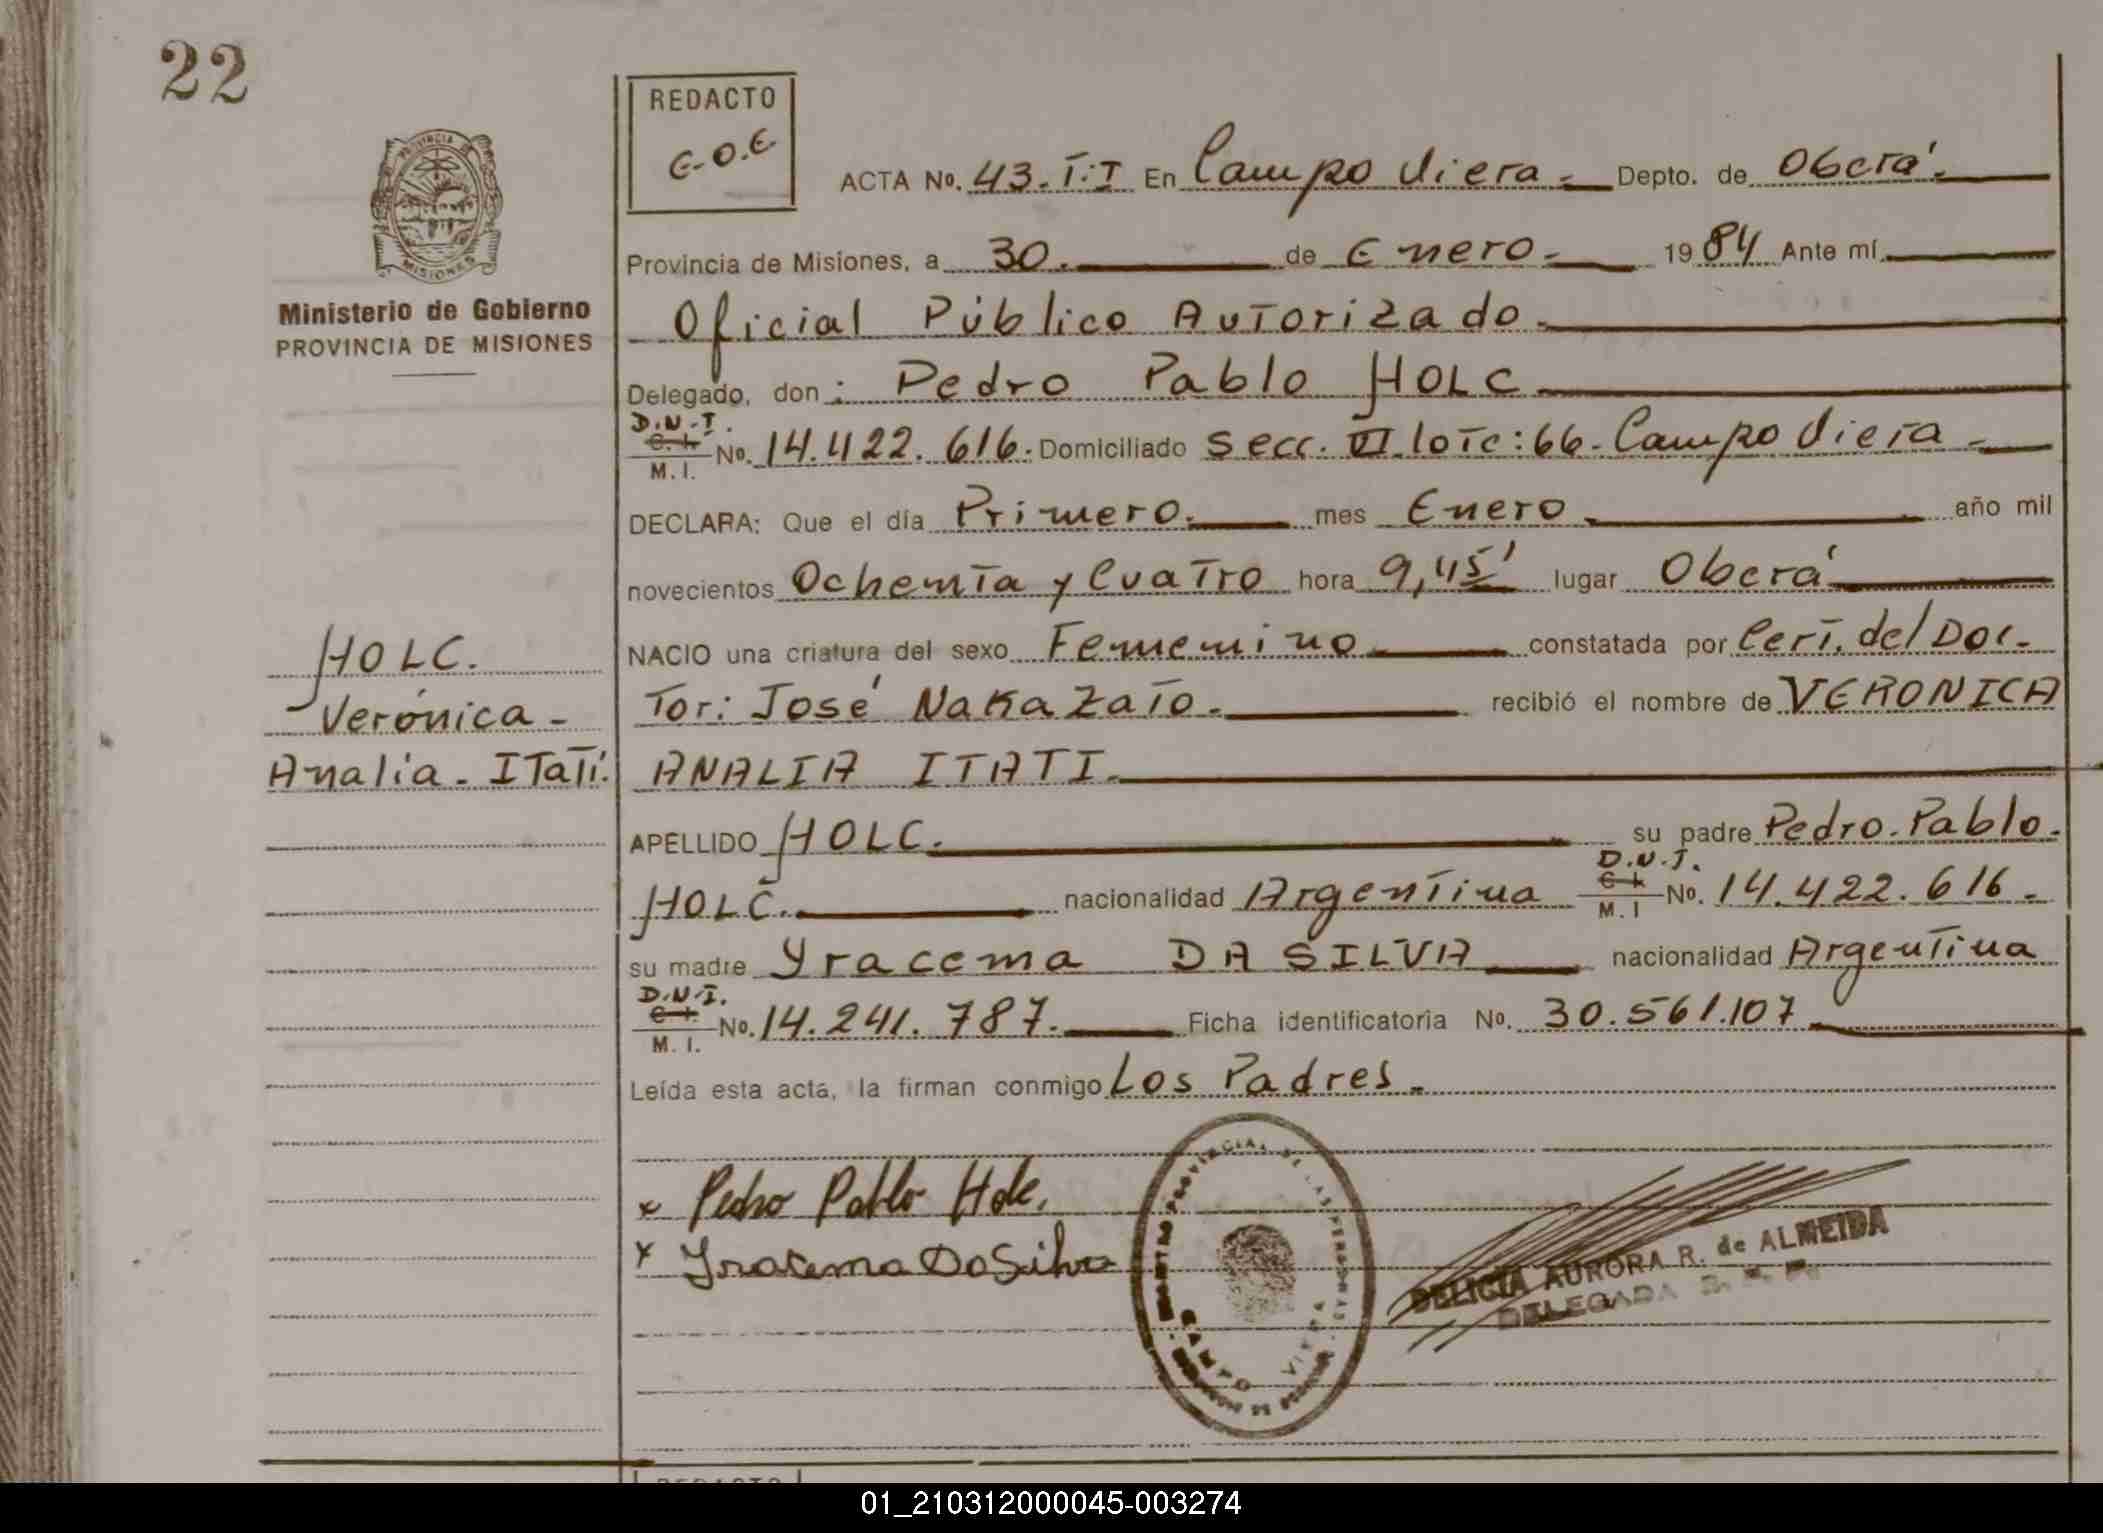 22
REDACTO
E.O.E
PROVINCIA DE
MISIONES
Ministerio de Gobierno
PROVINCIA DE MISIONES
ACTA No. 43. T:I En Campo Viera.- Depto. de Oberá.
Provincia de Misiones, a 30. de Enero. 1984 Ante mí
Oficial Público Autorizado.
Delegado, don: Pedro Pablo HOLC
D.N.I.
C.I. No. 14.422.616. Domiciliado Secc. VI lote: 66. Campo Viera.
M.I.
DECLARA: Que el día Primero. mes Enero. año mil
novecientos Ochenta y Cuatro hora 9,45' lugar Oberá
NACIO una criatura del sexo Femenino constatada por Cert. del Doc-
tor: José Nakazato. recibió el nombre de VERONICA
ANALIA ITATI.
HOLC.
Verónica -
Analía - Itatí.
APELLIDO HOLC. su padre Pedro. Pablo.
D.N.I.
HOLC. nacionalidad Argentina C.I. No. 14.422.616.
M.I
su madre Yracema DA SILVA nacionalidad Argentina
D.N.I.
C.I. No. 14.241.787. Ficha identificatoria No. 30.561.107
M.I.
Leída esta acta, la firman conmigo Los Padres.
x Pedro Pablo Holc.
x Yracema Da Silva
PROVINCIAL DE LAS PERSONAS
CAMPO VIERA
DELICIA AURORA R. de ALMEIDA
DELEGADA
REDACTO
01_210312000045-003274